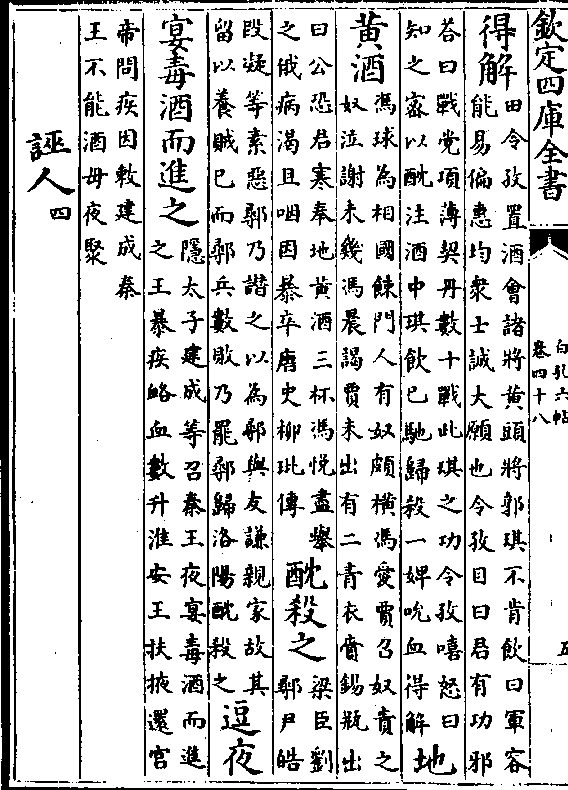 欽定四庫全書
白孔六帖
卷四十八
五
得解
田令孜置酒會諸將黄頭將郭琪不肯飲曰軍容
能易偏惠均衆士誠大願也令孜目曰君有功邪
荅曰戰党項薄契丹數十戰此琪之功令孜嘻怒曰
知之宻以酖注酒中琪飲已馳歸殺一婢吮血得解
地
黄酒
馮球為相國餗門人有奴頗横馮愛賈召奴責之
奴泣謝未幾馮晨謁賈未出有二青衣賫錫瓶出
曰公恐君寒奉地黄酒三杯馮悦盡舉
之俄病渴且咽因暴卒唐史柳玭傳
酖殺之
梁臣劉
鄩尹皓
段凝等素惡鄩乃譖之以為鄩與友謙親家故其
留以養賊已而鄩兵數敗乃罷鄩歸洛陽酖殺之
逗夜
宴毒酒而進之
隱太子建成等召秦王夜宴毒酒而進
之王暴疾略血數升淮安王扶掖還宫
帝問疾因敕建成秦
王不能酒毋夜聚
誣人四